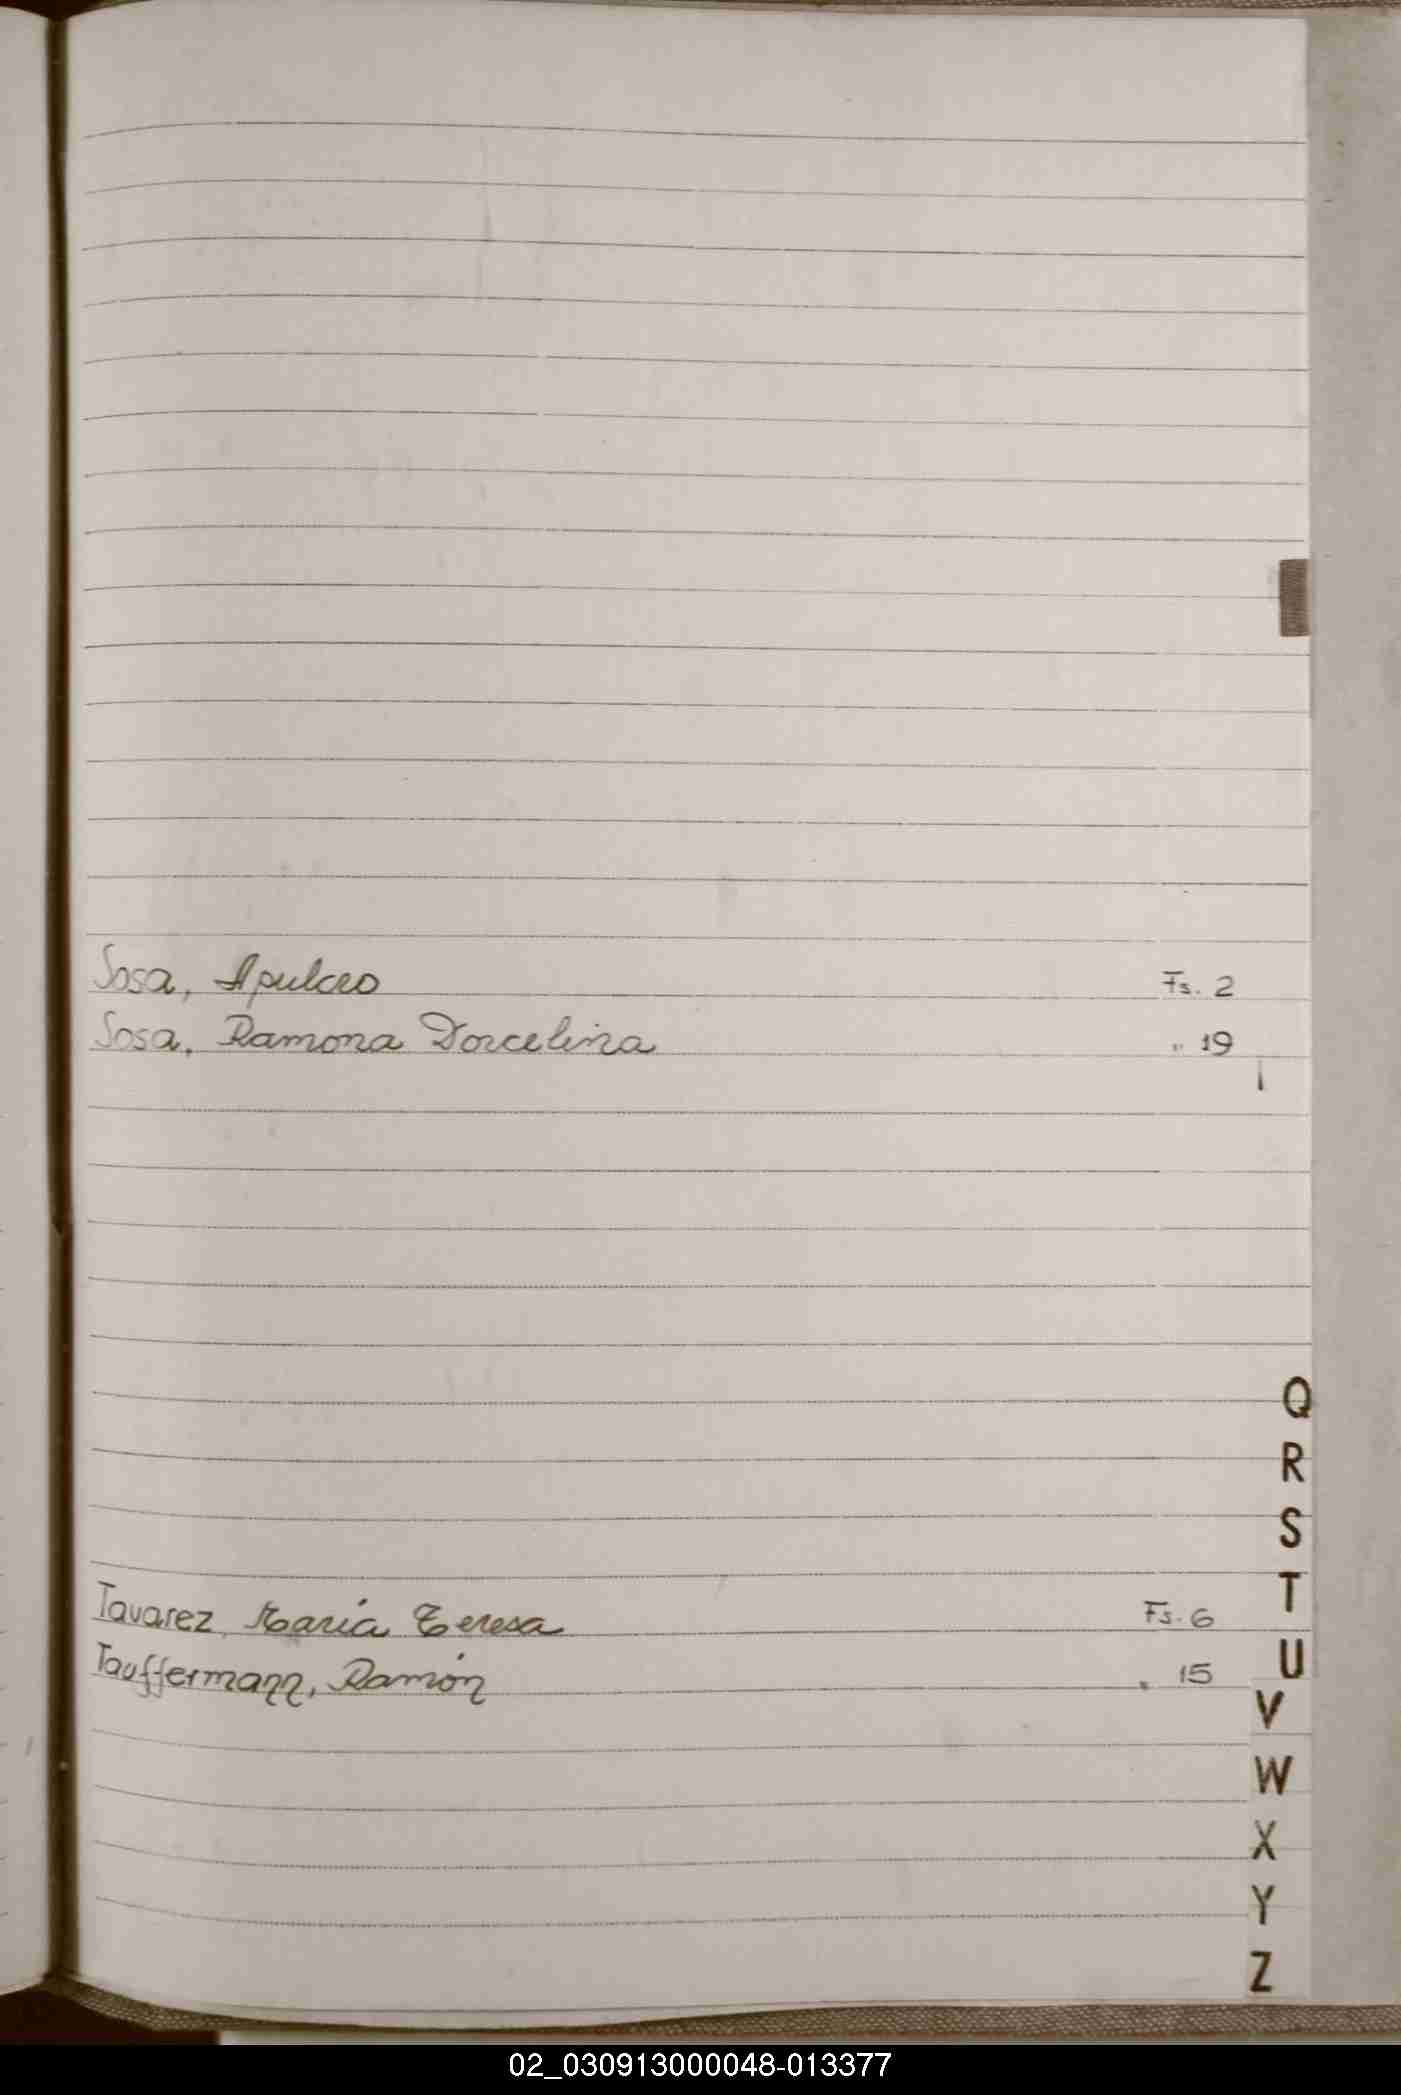 Sosa, Apulceo Fs. 2
Sosa, Ramona Dorcelina " 19
Q
R
S
Tavarez, María Teresa Fs. 6
T
Tauffermann, Ramón " 15
U
V
W
X
Y
Z
02_030913000048-013377